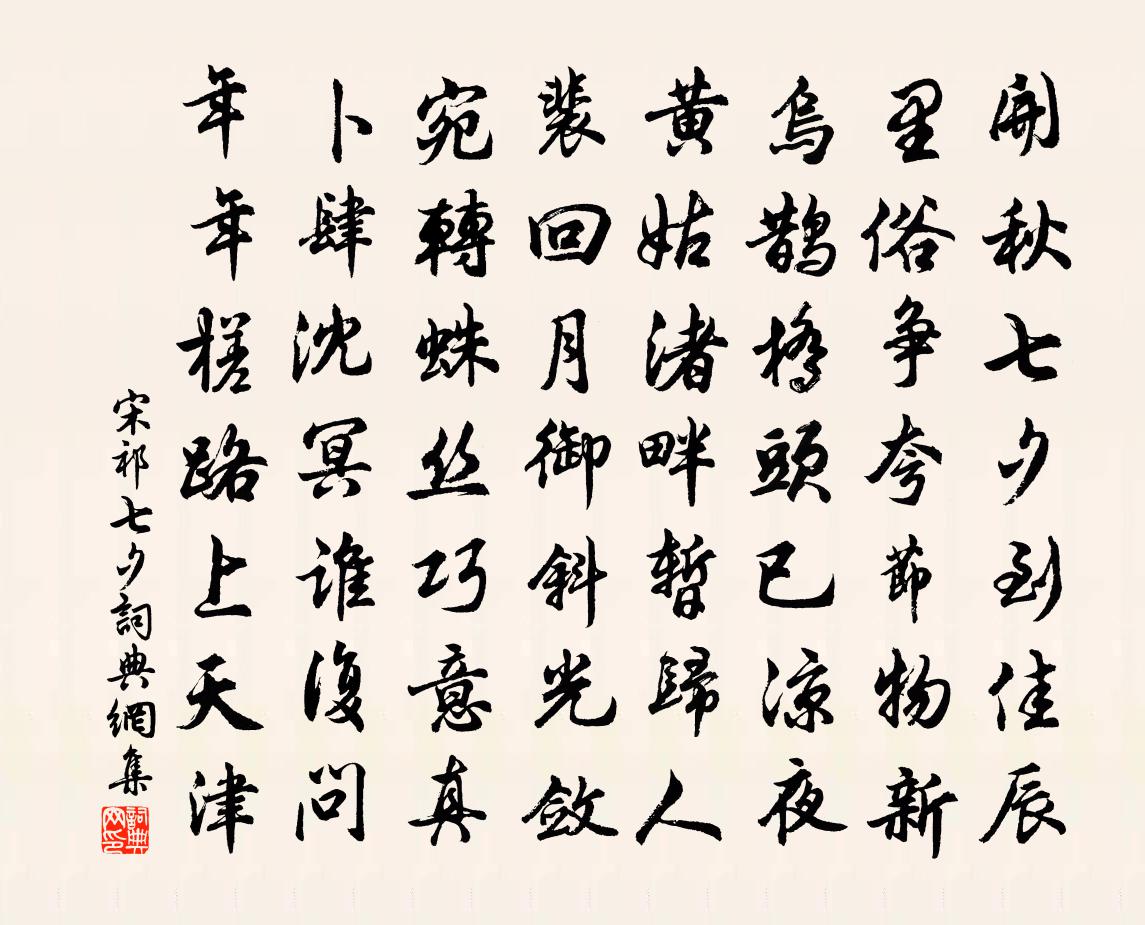 開秋七夕到佳辰
里俗争夸節物新
烏鵲橋頭已凉夜
黄姑渚畔暫歸人
裴回月御斜光斂
宛轉蛛丝巧意真
卜肆沈冥誰復問
年年槎路上天津
宋祁七夕詞典網集
詞典网印